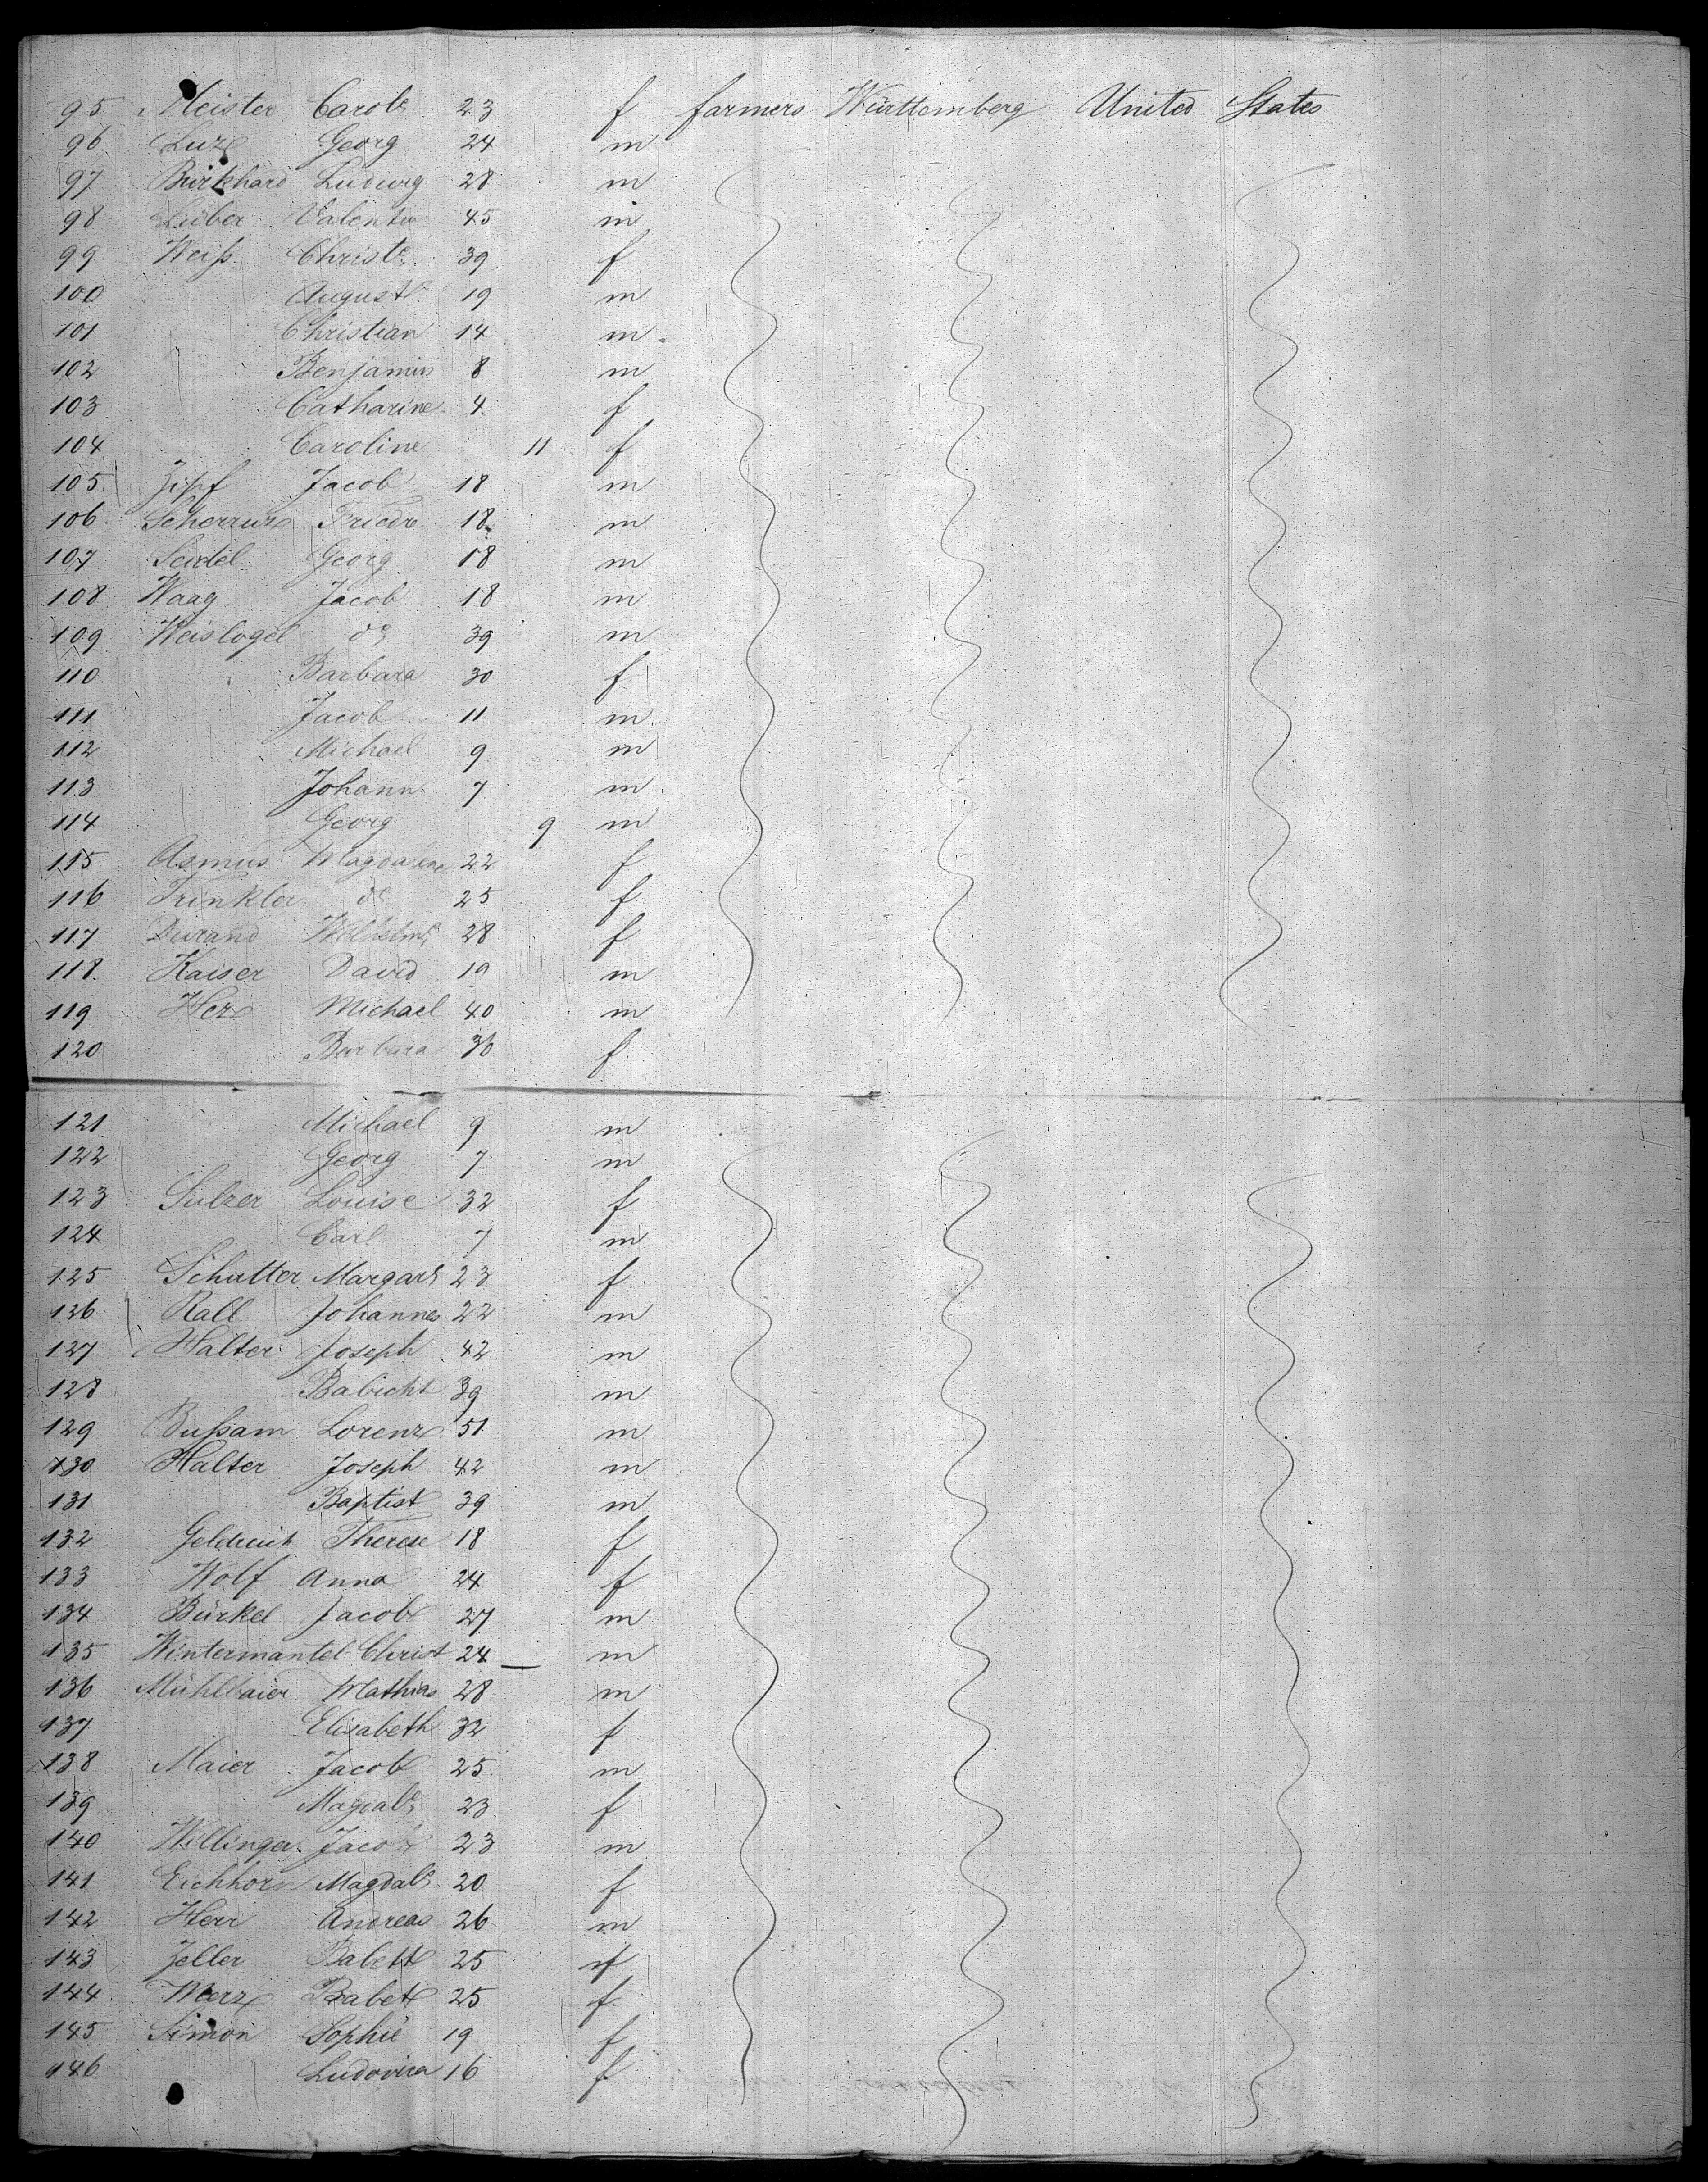 95 Meister Carole 23 f farmers Württemberg United States
96 Luz Georg 24 m
97 Burkhard Ludwig 28 m
98 Luber Valentin 45 m
99 Weiß Christe 39 f
100 August 19 m
101 Christian 14 m
102 Benjamin 8 m
103 Catharine 4 f
104 Caroline 11 f
105 Zipf Jacob 18 m
106 Friedr 18 m
107 Seidel Georg 18 m
108 Waag Jacob 18 m
109 Weislogel do 39 m
110 Barbara 30 f
111 Jacob 11 m
112 Michael 9 m
113 Johann 7 m
114 Georg 9 m
115 Asmus Magdaline 22 f
116 Trinkler do 25 f
117 Durand Wilhelme 28 f
118 Kaiser David 19 m
119 Herz Michael 40 m
120 Barbara 36 f
121 Michael 9 m
122 Georg 7 m
123 Sulzer Louise 32 f
124 Carl 7 m
125 Schutter Margare 23 f
126 Rall Johannes 22 m
127 Halter Joseph 42 m
128 Babicht 39 m
129 Bußam Lorenz 51 m
130 Halter Joseph 42 m
131 Baptist 39 m
132 Geldreich Therese 18 f
133 Wolf Anna 24 f
134 Bürkel Jacob 27 m
135 Wintermantel Christ 24 m
136 Mühlbaier Mathias 28 m
137 Elisabeth 32 f
138 Maier Jacob 25 m
139 Magdale 23 f
140 Willinger Jacob 23 m
141 Eichhorn Magdale 20 f
142 Herr Andreas 26 m
143 Zeller Babett 25 f
144 Merz Babet 25 f
145 Simon Sophie 19 f
146 Ludovica 16 f